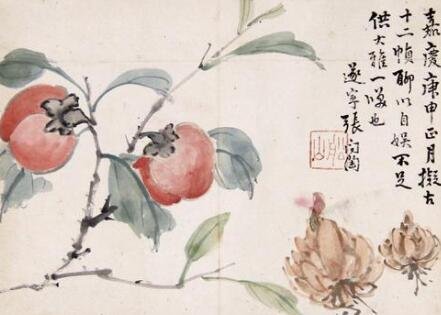 嘉慶庚申正月擬古
十二幀聊以自娛不足
供大雅一噱也
遂寧張問陶
船山